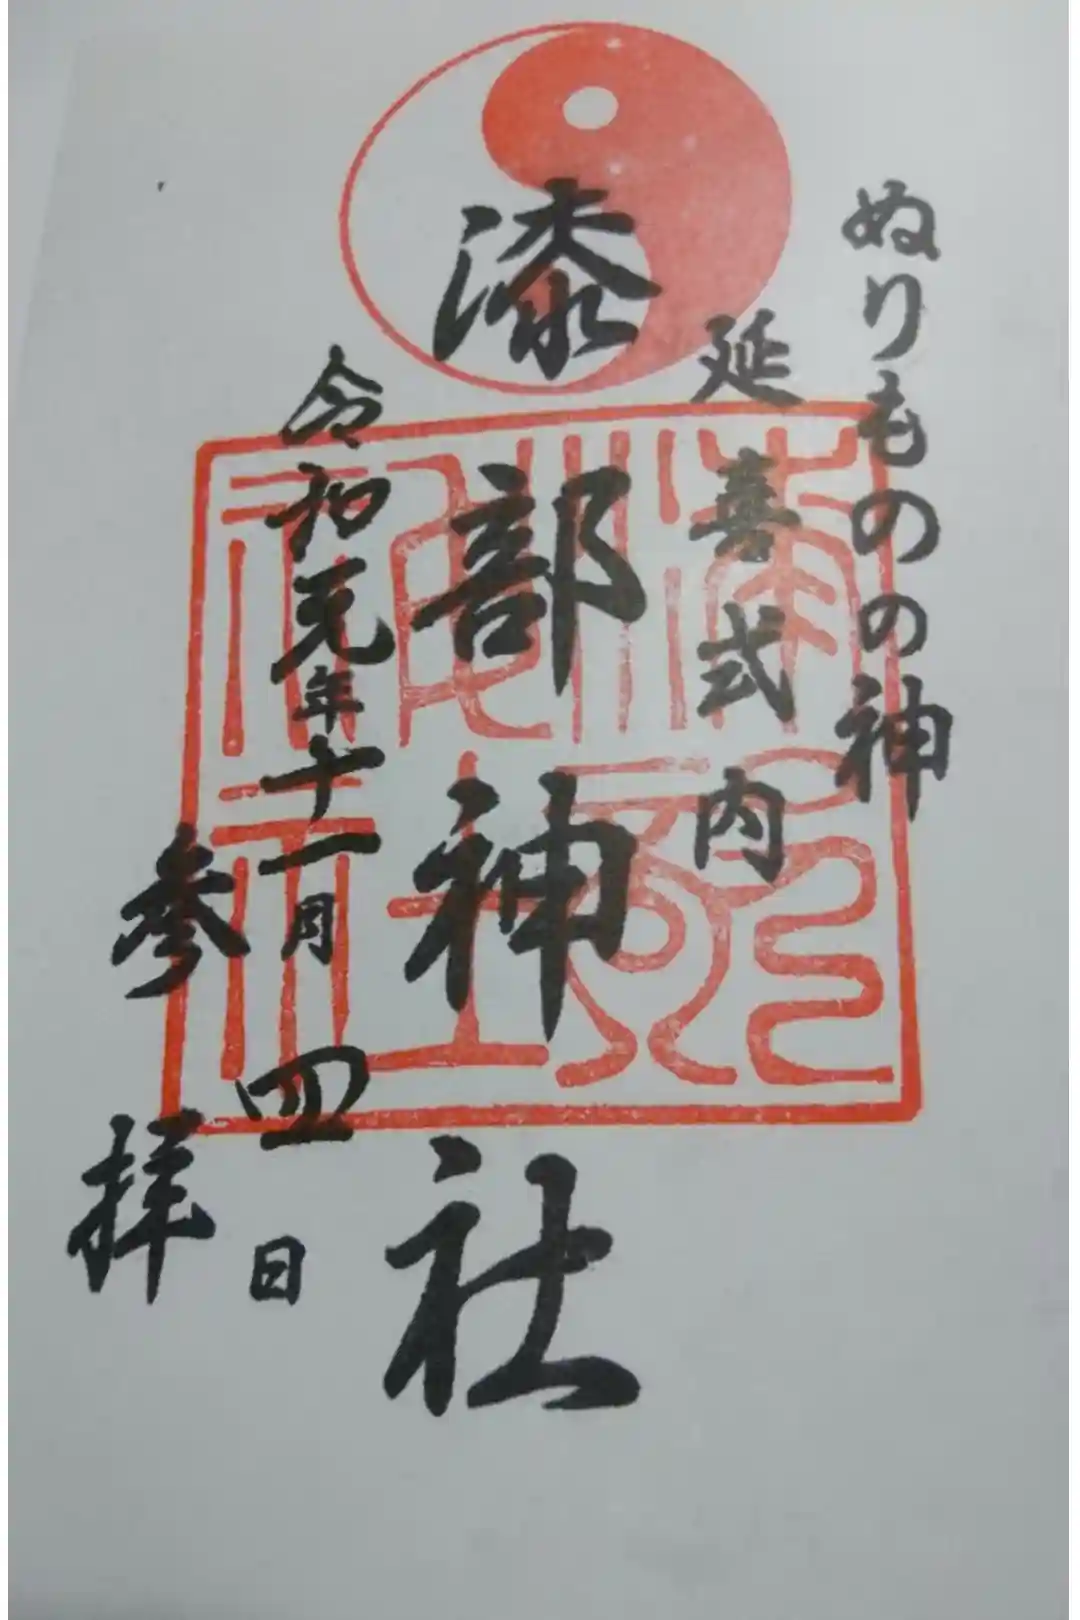 ぬりものの神
延喜式内
漆部神社
令和元年十一月四日
参拝